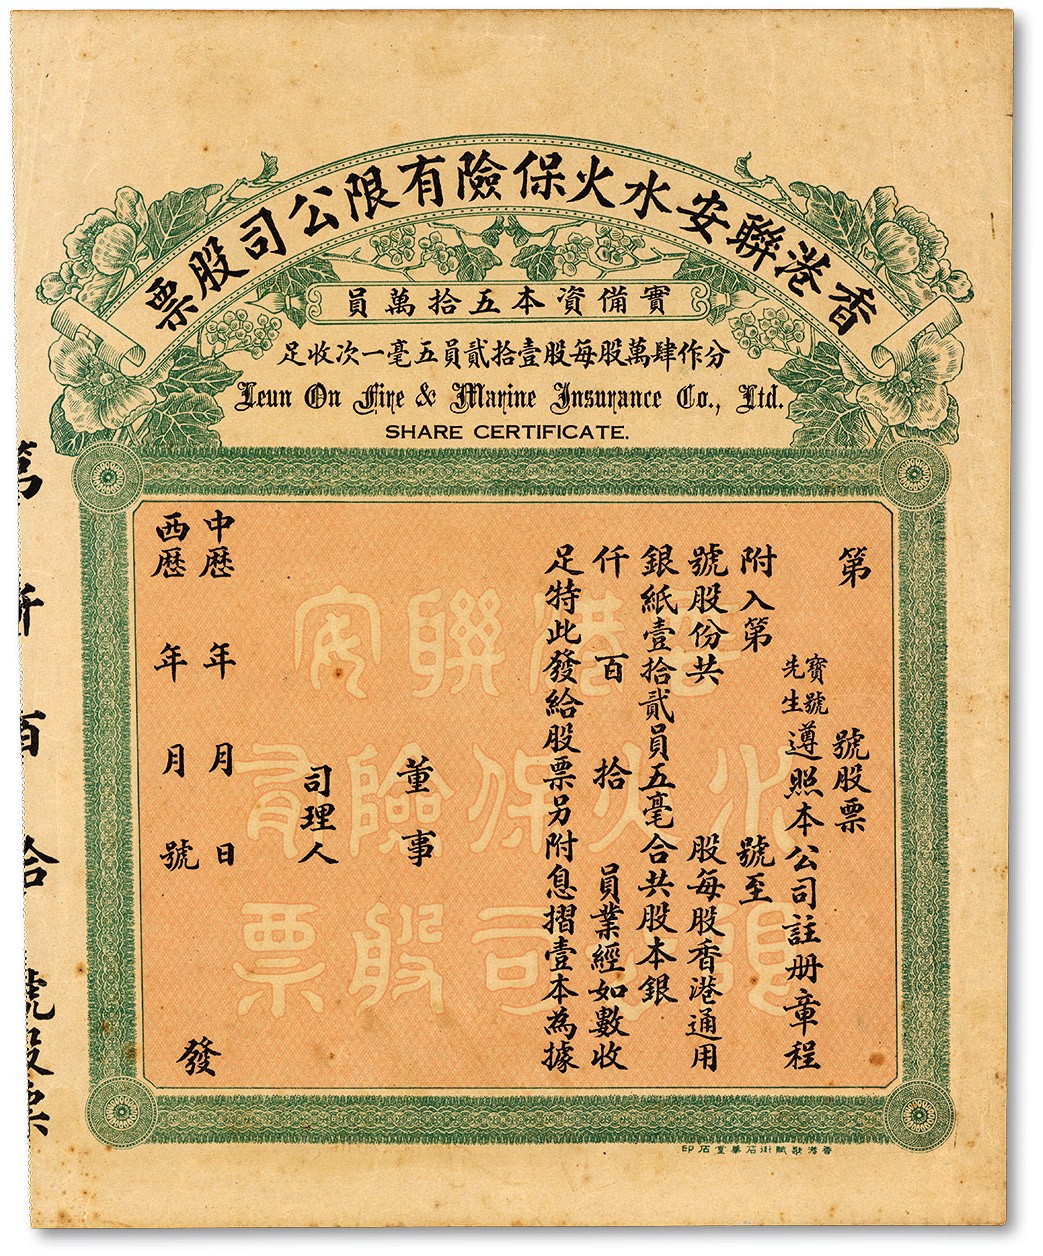 香港聯安水火保險有限公司股票
實備資本五拾萬員
分作肆萬股每股壹拾貳員五毫一次收足
Leun On Fire & Marine Insurance Co., Ltd.
SHARE CERTIFICATE.
第 號股票
寶號
先生
遵照本公司註册章程
附入第 號至
號股份共 股每股香港通用
銀紙壹拾貳員五毫合共股本銀
仟 百 拾 員業經如數收
足特此發給股票另附息摺壹本為據
董事
司理人
中歷 年 月 日
西歷 年 月 號
發
香港聯安
水火保險有
限公司股票
第 百 拾 號股票